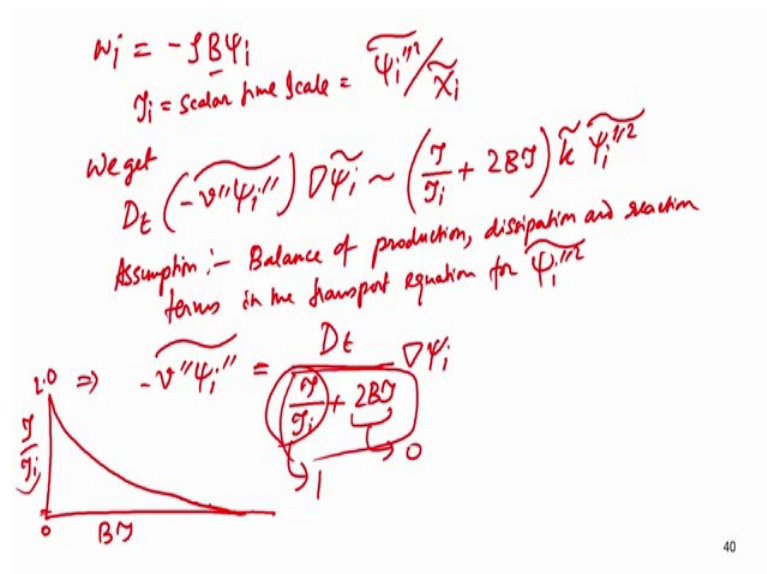 wᵢ = - ρBψᵢ
𝒯ᵢ = Scalar time scale = ψᵢ''²~ / χ̃ᵢ
We get
D_t (-v''ψᵢ''~) ∇ψ̃ᵢ ~ (𝒯/𝒯ᵢ + 2B𝒯) k̃ ψᵢ''²~
Assumption :- Balance of production, dissipation and reaction
terms in the transport equation for ψᵢ''²~
⇒ -v''ψᵢ''~ = D_t / (𝒯/𝒯ᵢ + 2B𝒯) ∇ψᵢ
→ 1 → 0
1.0
𝒯/𝒯ᵢ
0
B𝒯
40